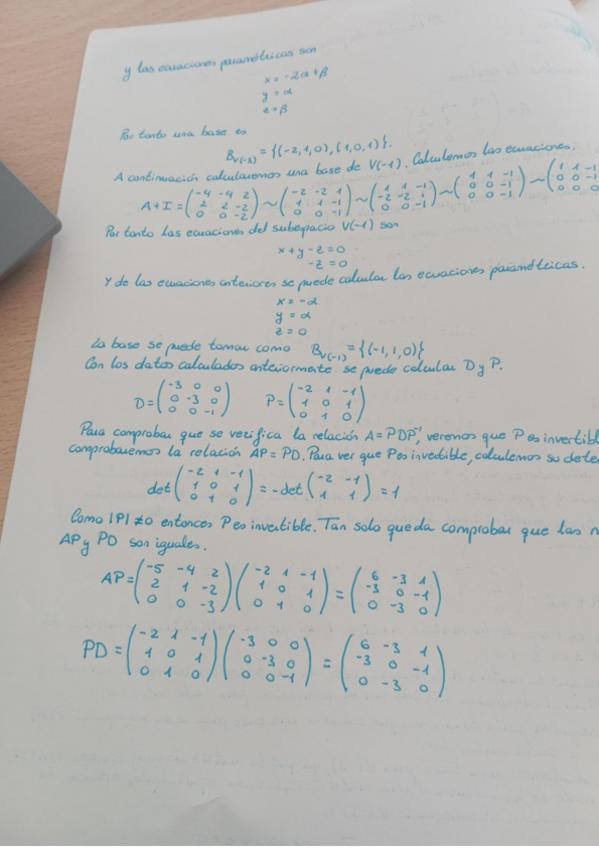 y las ecuaciones paramétricas son
x = -2α + β
y = α
z = β
Por tanto una base es
B_{V(-3)} = {(-2,1,0), (1,0,1)}.
A continuación calcularemos una base de V(-1). Calculemos las ecuaciones.
A+I = (-4 -4 2; 2 2 -2; 0 0 -2) ~ (-2 -2 1; 1 1 -1; 0 0 -1) ~ (1 1 -1; -2 -2 1; 0 0 -1) ~ (1 1 -1; 0 0 -1; 0 0 -1) ~ (1 1 -1; 0 0 -1; 0 0 0
Por tanto las ecuaciones del subespacio V(-1) son
x + y - z = 0
-z = 0
Y de las ecuaciones anteriores se puede calcular las ecuaciones paramétricas.
x = -α
y = α
z = 0
La base se puede tomar como B_{V(-1)} = {(-1,1,0)}
Con los datos calculados anteriormente se puede calcular D y P.
D = (-3 0 0; 0 -3 0; 0 0 -1) P = (-2 1 -1; 1 0 1; 0 1 0)
Para comprobar que se verifica la relación A = PDP⁻¹, veremos que P es invertibl
comprobaremos la relación AP = PD. Para ver que P es invertible, calculemos su dete
det (-2 1 -1; 1 0 1; 0 1 0) = -det (-2 -1; 1 1) = 1
Como |P| ≠ 0 entonces P es invertible. Tan solo queda comprobar que las
AP y PD son iguales.
AP = (-5 -4 2; 2 1 -2; 0 0 -3) (-2 1 -1; 1 0 1; 0 1 0) = (6 -3 1; -3 0 -1; 0 -3 0)
PD = (-2 1 -1; 1 0 1; 0 1 0) (-3 0 0; 0 -3 0; 0 0 -1) = (6 -3 1; -3 0 -1; 0 -3 0)